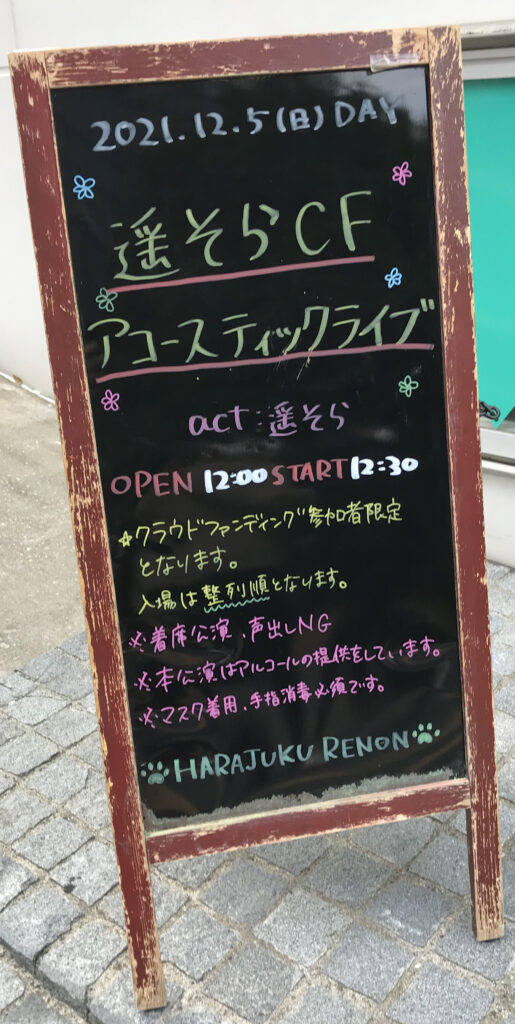 2021.12.5(日) DAY
遥そらCF
アコースティックライブ
act:遥そら
OPEN 12:00 START 12:30
☆クラウドファンディング参加者限定
となります。
入場は整列順となります。
※着席公演、声出しNG
※本公演はアルコールの提供をしています。
※マスク着用、手指消毒必須です。
HARAJUKU RENON